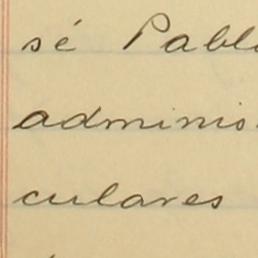 sé Pablo
adminis
culares